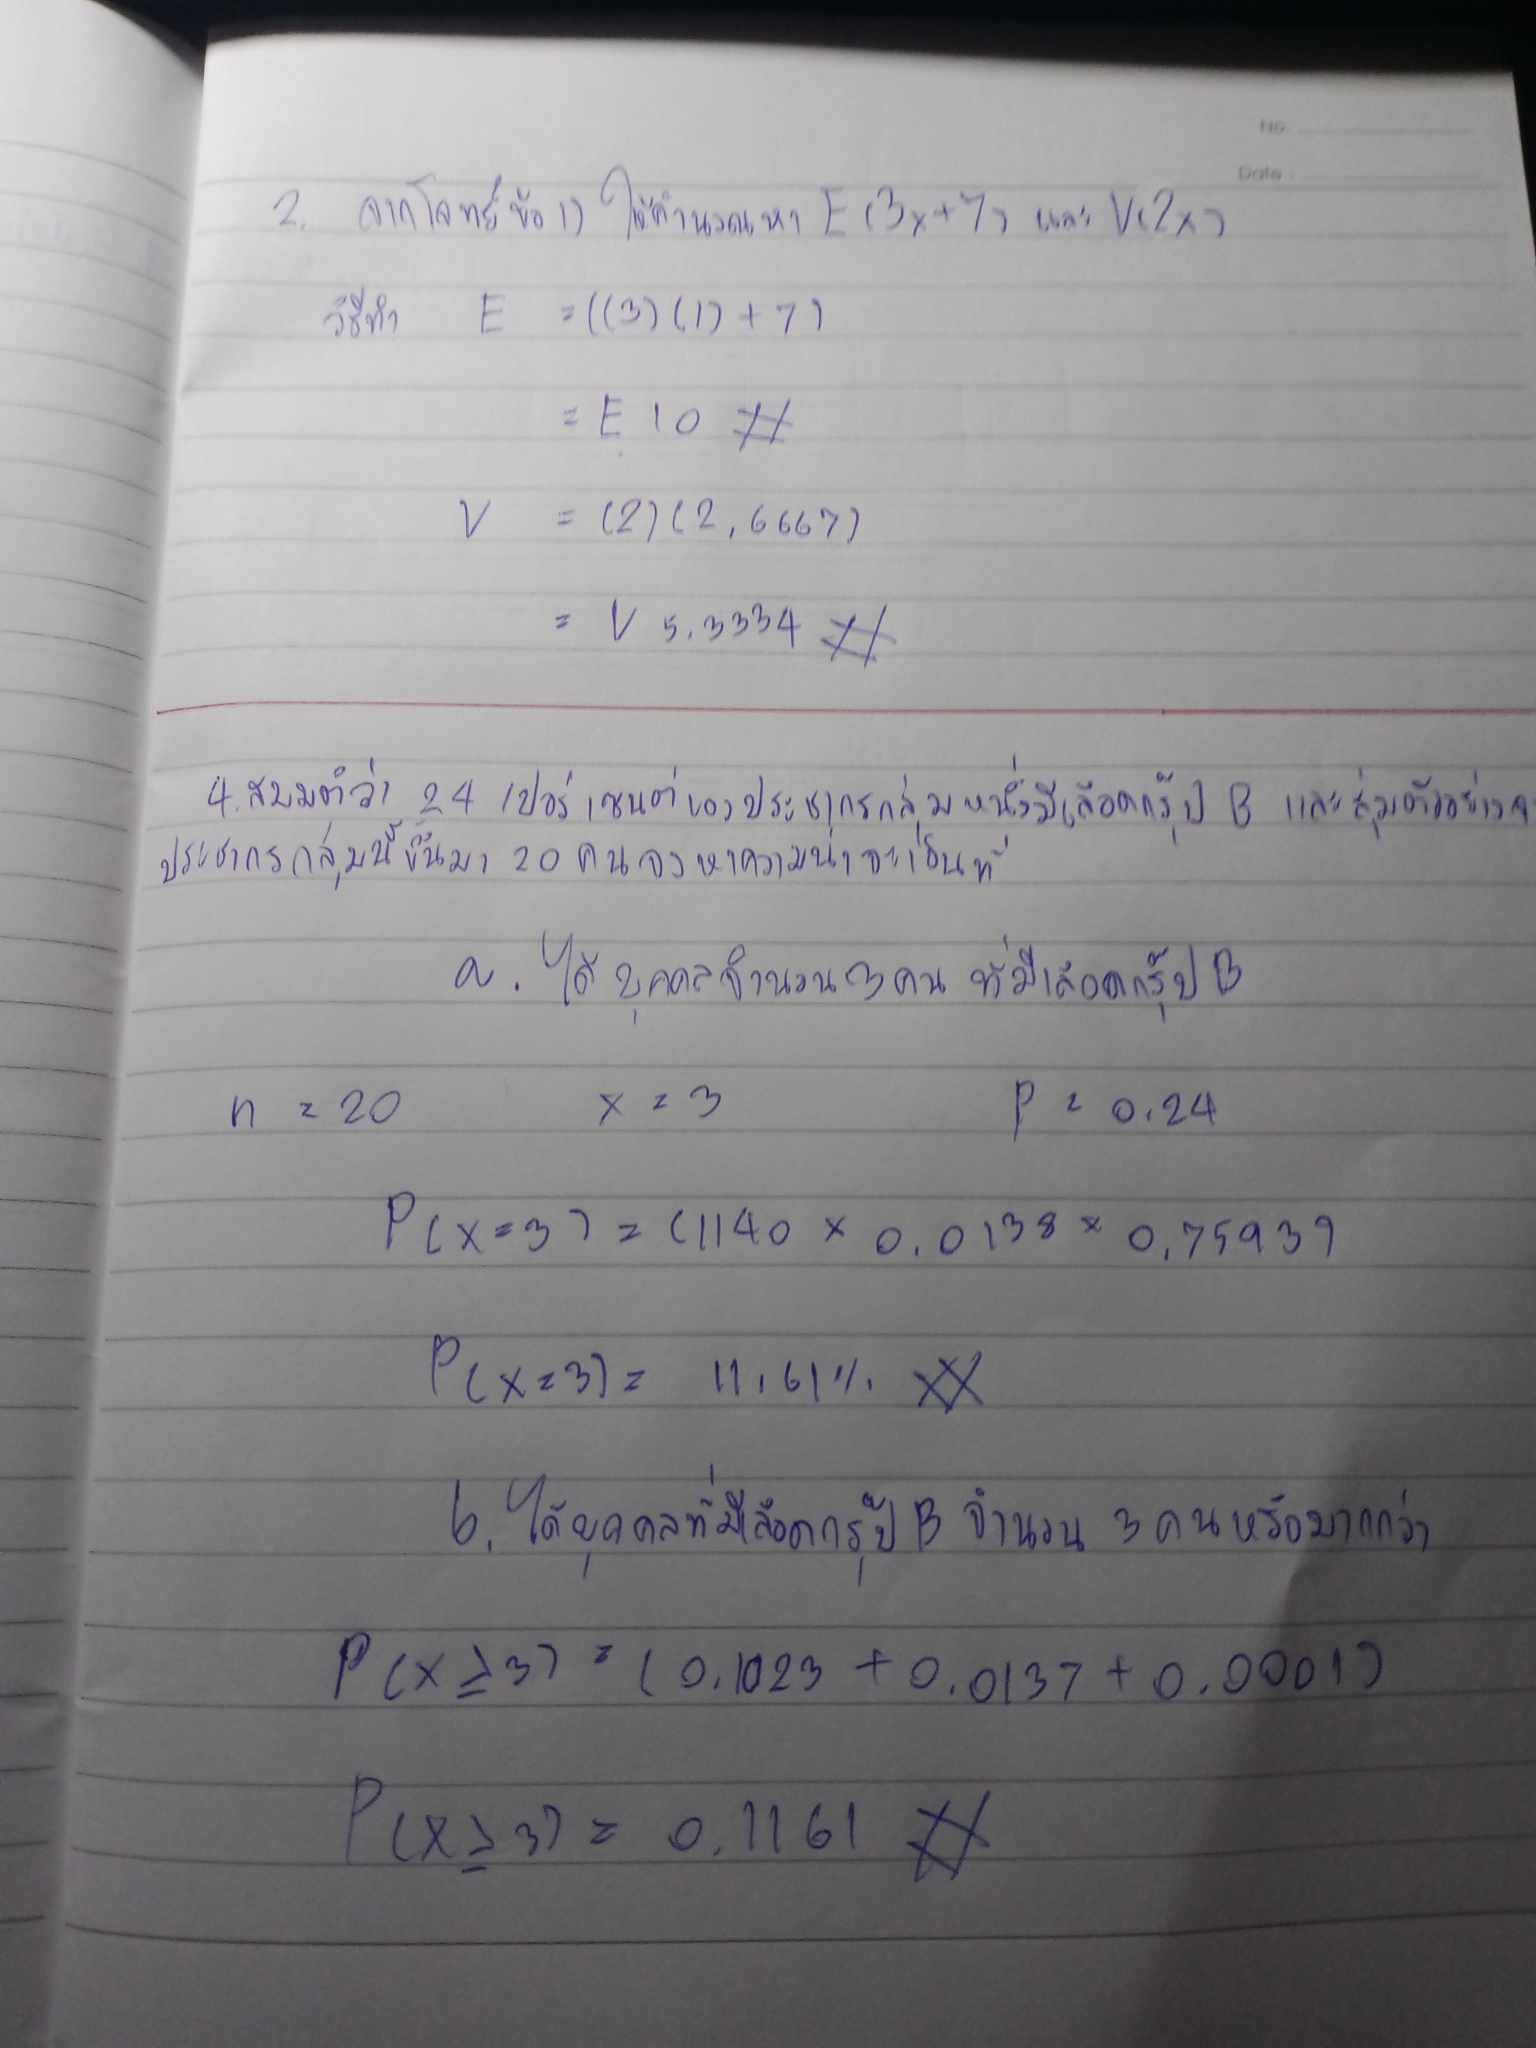 No.
Date :
2. จากโจทย์ข้อ 1) ให้คำนวณหา E(3x+7) และ V(2x)
วิธีทำ E = ((3)(1)+7)
= E 10 #
V = (2)(2.6667)
= V 5.3334 #
4. สมมติว่า 24 เปอร์เซนต์ของประชากรกลุ่มหนึ่งมีเลือดกรุ๊ป B และสุ่มตัวอย่าง
ประชากรกลุ่มนี้ขึ้นมา 20 คนจงหาความน่าจะเป็นที่
a. ได้บุคคลจำนวน 3 คน ที่มีเลือดกรุ๊ป B
n = 20 x = 3 P = 0.24
P(x=3) = (1140 × 0.0138 × 0.7593)
P(x=3) = 11.61% #
b. ได้บุคคลที่มีเลือดกรุ๊ป B จำนวน 3 คนหรือมากกว่า
P(x≥3) = (0.1023 + 0.0137 + 0.0001)
P(x≥3) = 0.1161 #